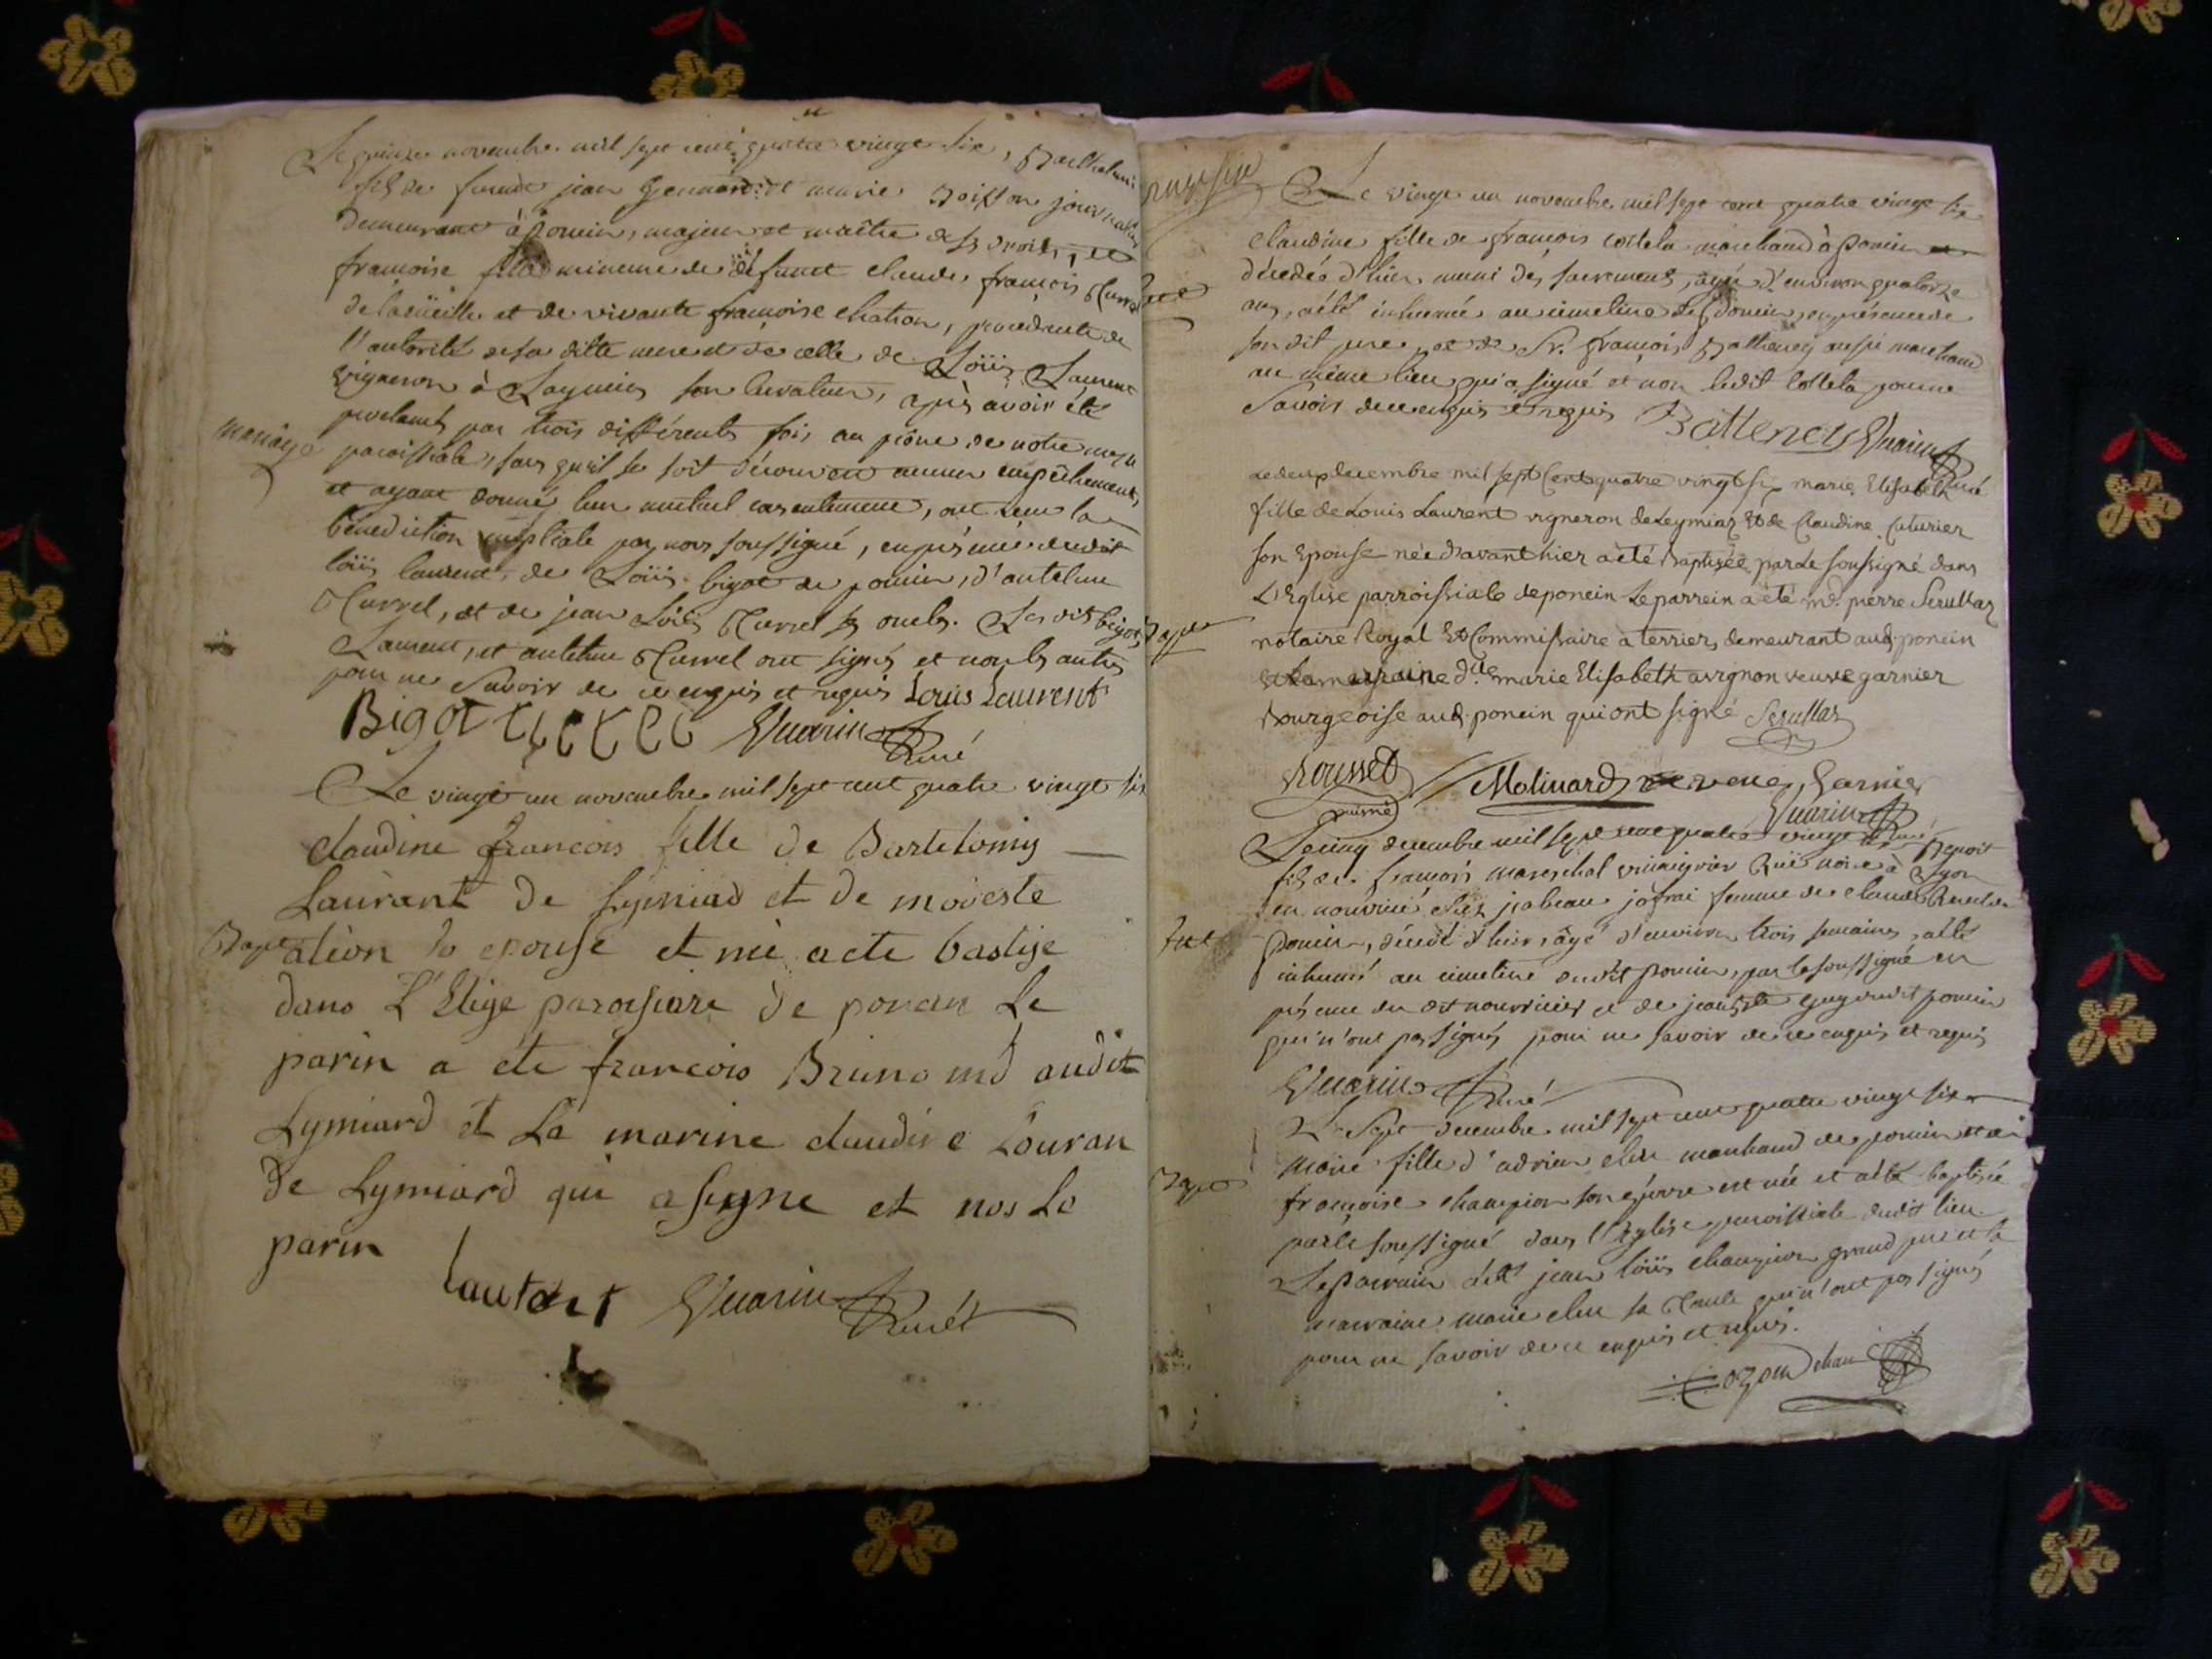 Le quinze novembre mil sept cent quatre vingt six, Barthelemi
fils de jean et marie Boisson journalier
demeurant à poncin, majeur et maître de ses droits, et
françoise fille mineure de défunt claude françois
et de vivante françoise chation, procedante de
l'autorité de sa ditte mere et de celle de Loüis Laurent
vigneron à Leymia son curateur, après avoir été
proclamés par trois différentes fois au prône de notre messe
mariage
paroissiale, sans qu'il se soit découvert aucun empêchement,
et ayant donné leur mutuel consentement, ont reçu la
bénédiction nuptiale par nous soussigné, en présence dudit
loüis laurent, de Loüis bigot de poncin, d'antelme
Murrel, et de jean Loüis Murrel ses oncles. Les dits bigot,
Laurent, et antelme Murrel ont signés et non les autres
pour ne savoir de ce enquis et requis Louis Laurent
Bigot Guarin Curé
Le vingt un novembre mil sept cent quatre vingt six
claudine francois fille de Bartelomy
Laurant de Lymiad et de modeste
Bapt
ation so epouse et nie a ete bastise
dans L'Eglge paroisiare de poncin Le
parin a ete francois Bruno md audit
Lymiard et La marine claudine Louran
de Lymiard qui a signe et nos Le
parin
Laurent Guarin Curé
Le vingt un novembre mil sept cent quatre vingt six
claudine fille de françois cottela marchand à poncin
décédée d'hier munie des sacrements, âgée d'environ quatorze
ans, a été inhumée au cimetiere de poncin, en présence de
son dit pere, et de Sr. françois Battency aussi marchand
au même lieu qui a signé et non ledit cottela pour ne
savoir de ce enquis et requis Battency Guarin
Curé
Le deux decembre mil sept Cent quatre vingt six marie Elisabeth
fille de Louis Laurent vigneron de Leymiaz Et de Claudine Couturier
son Epouse née d'avant hier a été Baptisée par Le soussigné dans
L'Eglise parroissiale de poncin Le parrein a été md. pierre Serullaz
Bapt
notaire Royal Et Commissaire a terriers demeurant aud. poncin
et La marraine dlle marie Elisabeth avignon veuve garnier
Bourgeoise aud. poncin qui ont signé Serullaz
Rousset puiné Molinard veuve Garnier
Guarin Curé
Le cinq decembre mil sept cent quatre vingt six Benoit
fils de françois mareschal vinaigrier Rüe noire à Lyon
en nourrice chez isabeau jofrai femme de claude
poncin, décédé d'hier, âgé d'environ trois semaines, a été
inhumé au cimetiere du dit poncin, par le soussigné en
présence du dit nourricier et de du dit poncin
qui n'ont pas signés pour ne savoir de ce enquis et requis
Guarin Curé
Le Sept decembre mil sept cent quatre vingt six
marie fille d'adrien clere marchand de poncin et de
Bapt
françoise champion son épouse est née et a été baptisée
par le soussigné dans l'Eglise paroissiale dudit lieu
Le parrain a été jean loüis champion grand pere et la
marraine marie clere sa tante qui n'ont pas signés
pour ne savoir de ce enquis et requis.
Cozon